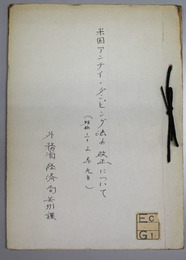 米国アンチ・ダンピング法の改正について
(昭和三十三年九月)
外務省経済局英米課
EC
G1